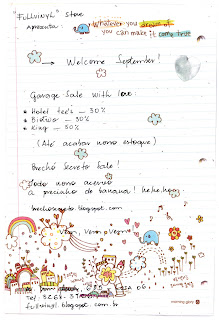 "Fullvinyl" Store
apresenta:
Whatever you dream of
you can make it come true
Welcome September!
Garage Sale with love:
Hotel tee's _ 30%
_ 50%
King _ 50%
(Até acabar nosso estoque)
Brechó Secreto Sale!
Todo nosso acervo
a precinho de banana! hehehe
brechosecreto.blogspot.com
Vem
Tel: 3268-
fullvinyl.blogspot.com.br
morning glory